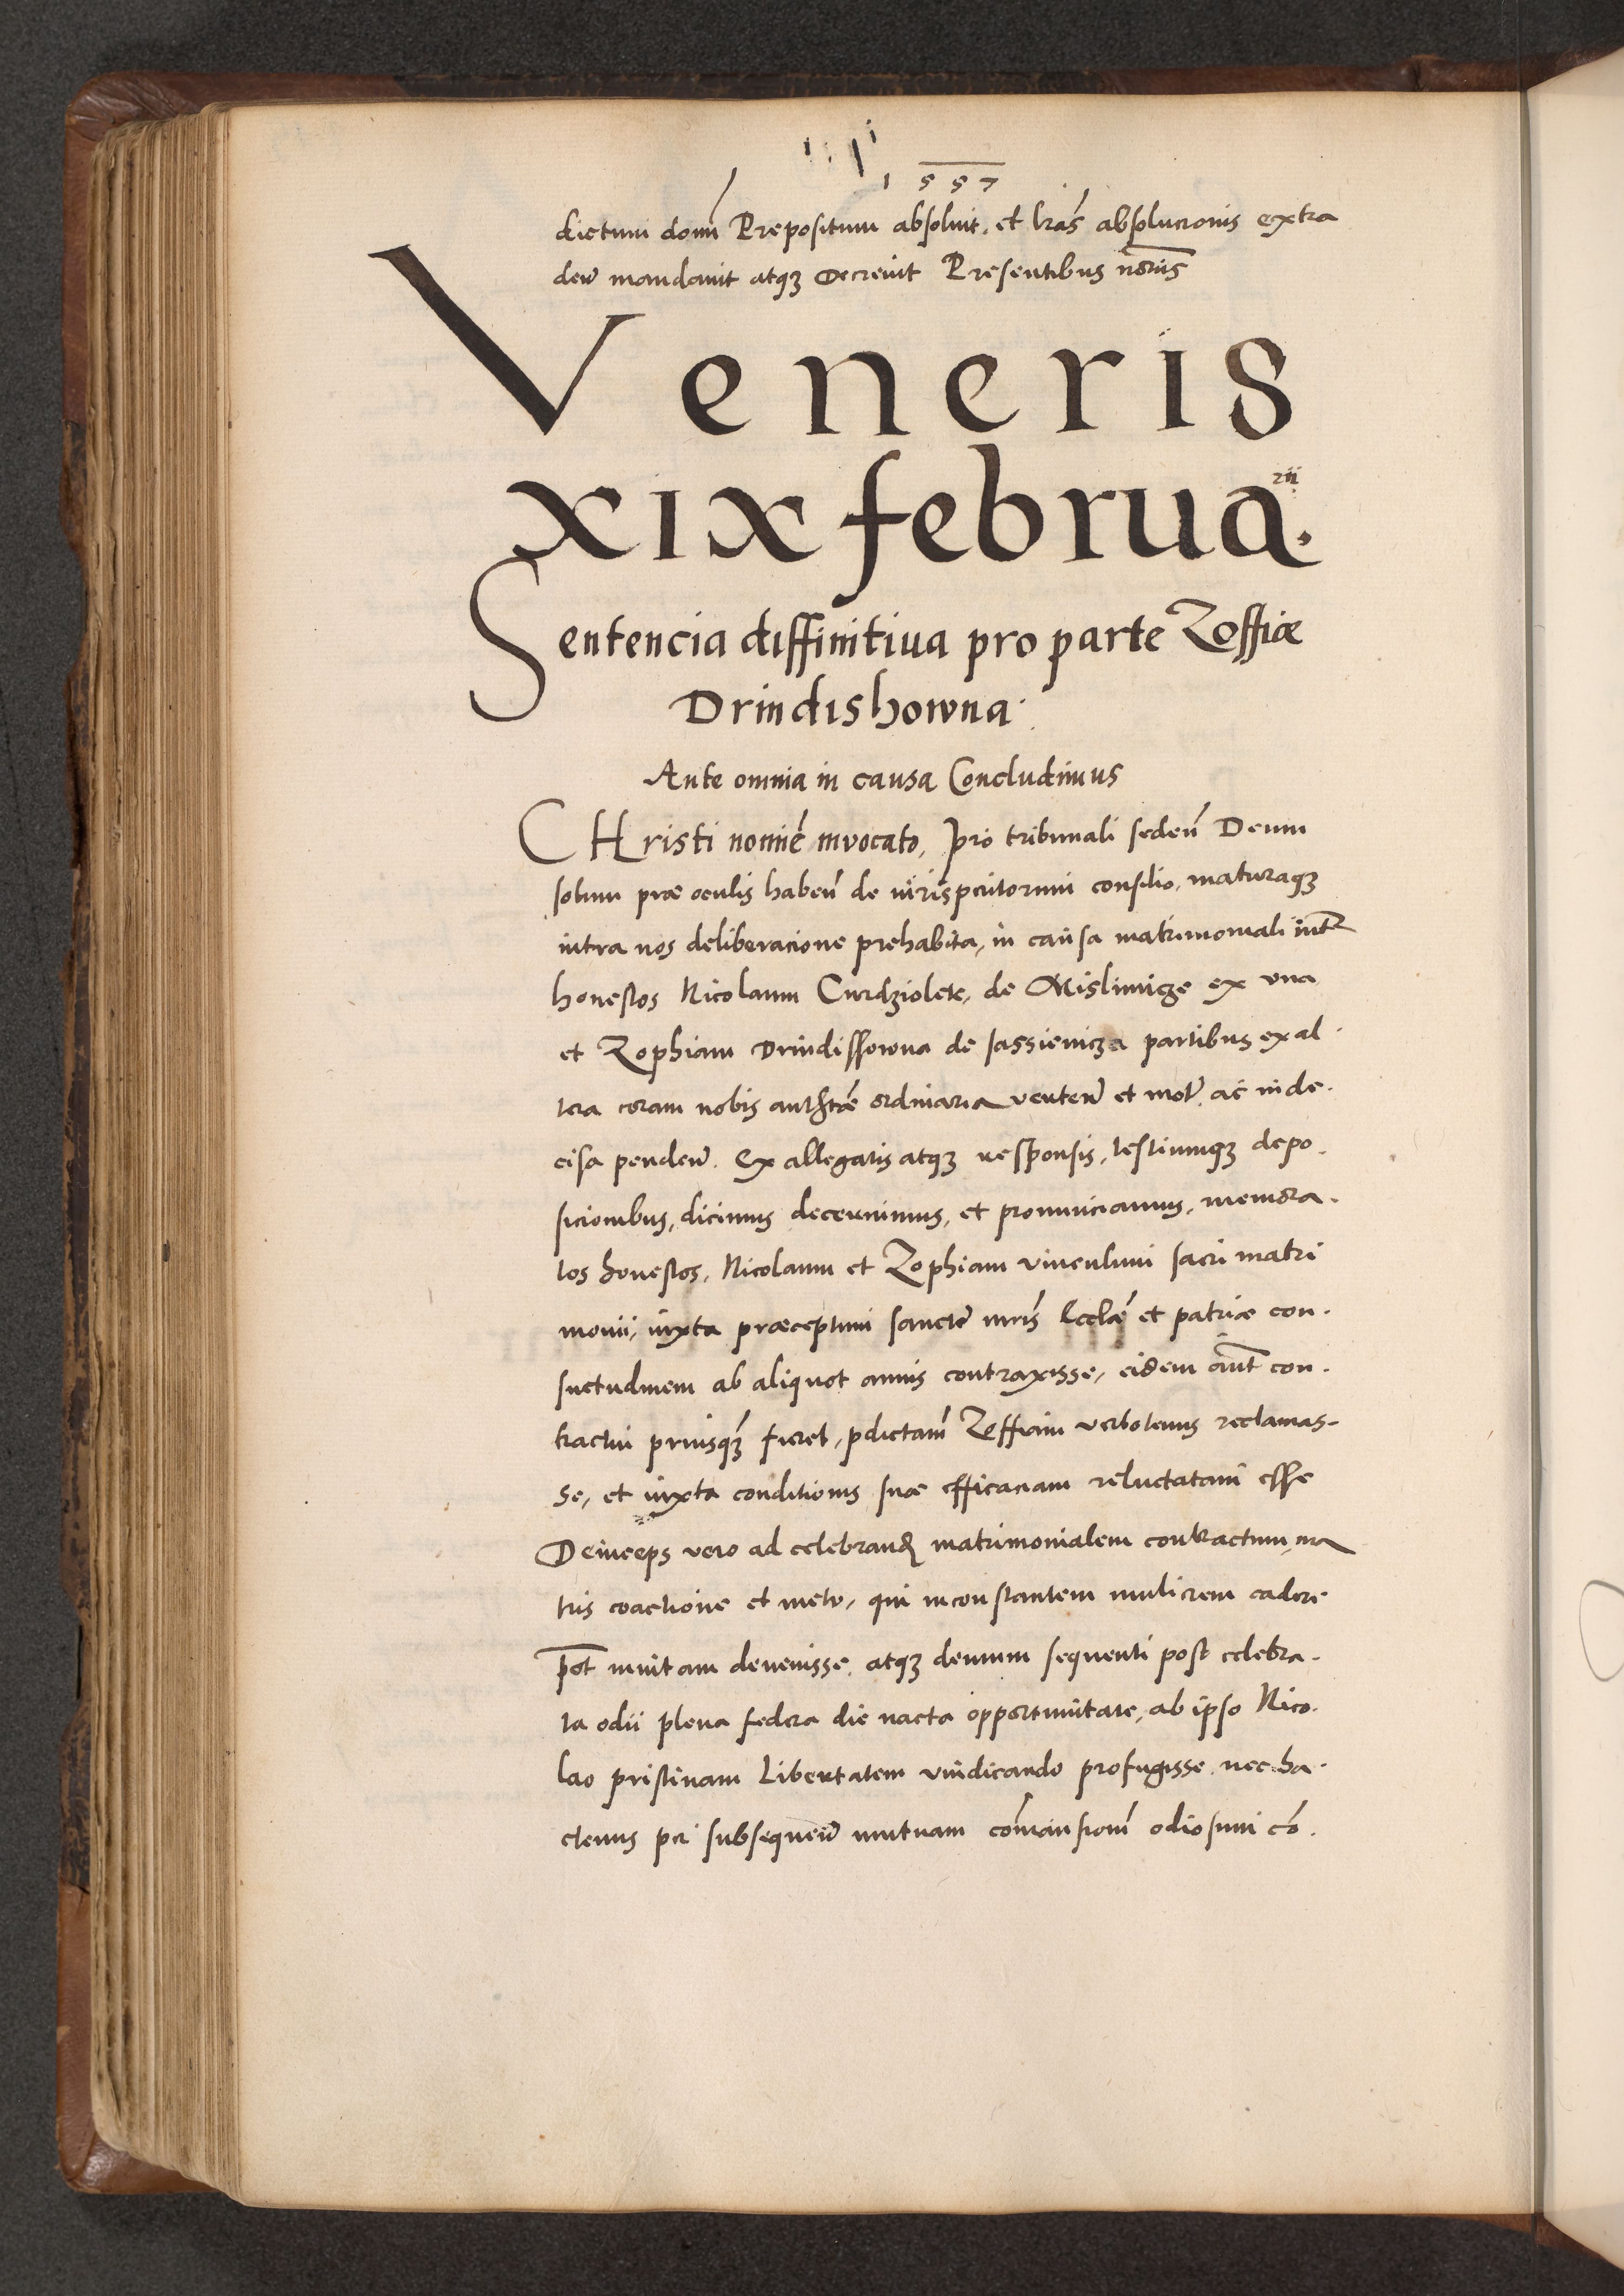 1557
dictum dom̄ Prepositum absoluit, et lr̄as absolucionis extra
der̄ mandauit atqꝫ decreuit Presentibus no͞rijs
Veneris
xix februa.rii
Sentencia diffinitiua pro parte Zoffiæ
Drindishowna
Ante omnia in causa Concludimus
CHristi nomīe inuocato, pro tribunali seden̄ Deum
solum præ oculis haben̄ de iurisp̄ritorum consilio, maturaqꝫ
intra nos deliberacione prehabita, in causa matrimoniali int̄
honestos Nicolaum Curdziolek, de Mislimicze ex vna
et Zophiam Drindissowna de Iassienicza partibus ex al
tera coram nobis ordinaria verten̄ et mot̄ ac inde
cisa penden̄. Ex allegatis atqꝫ responsis, testiumqꝫ depo
sicionibus, dicimus decernimus, et pronunciamus, memora
tos honestos, Nicolaum et Zophiam vinculum sacri matri
monii, iuxta præceptum sanctæ mr̄is Eccl̄æ et patriæ con
suetudinem ab aliquot annis contraxisse, eidem aūt con
tractui priusqꝫ fieret, p̄dictam Zoffiam verbotenus reclamas
se, et iuxta conditionis suæ efficaciam reluctatam esse
Deinceps vero ad celebrand̄ matrimonialem contractum, ma
tris coactione et metu, qui in constantem mulierem cadere
p̄ot inuitam deuenisse, atqꝫ demum sequenti post celebra
ta odii plena federa die nacta opportunitate, ab ipso Nico
lao pristinam Libertatem vindicando profugisse nec ha
ctenus per subsequen̄ mutuam com̄ansionē odiosum cō